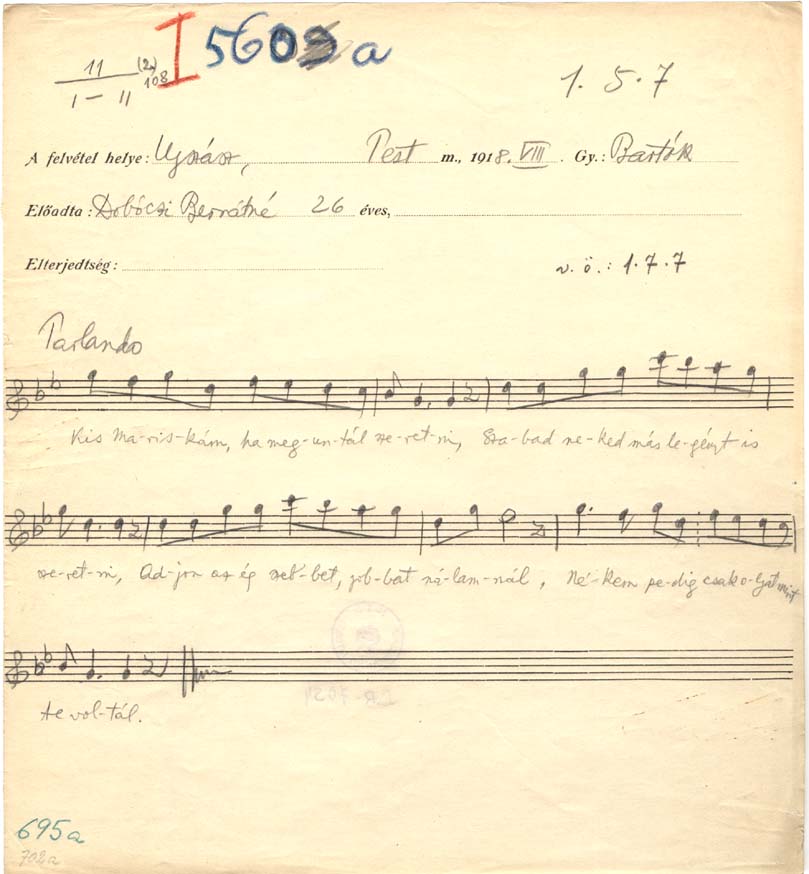 11 (2.) I 5603 a
I – II 108 1. 5. 7
A felvétel helye: Ujszász, Pest m., 1918. VIII. Gy.: Bartók
Előadta: Dobóczi Bernátné 26 éves,
Elterjedtség: v. ö.: 1.7.7
Parlando
Kis Ma-ris-kám, ha meg-un-tál sze-ret-ni, Sza-bad ne-ked más le-gényt is
sze-ret-ni, Ad-jon az ég szeb-bet, job-bat ná-lam-nál, Né-kem pe-dig csak o-lyat mint
te vol-tál.
695a
702a